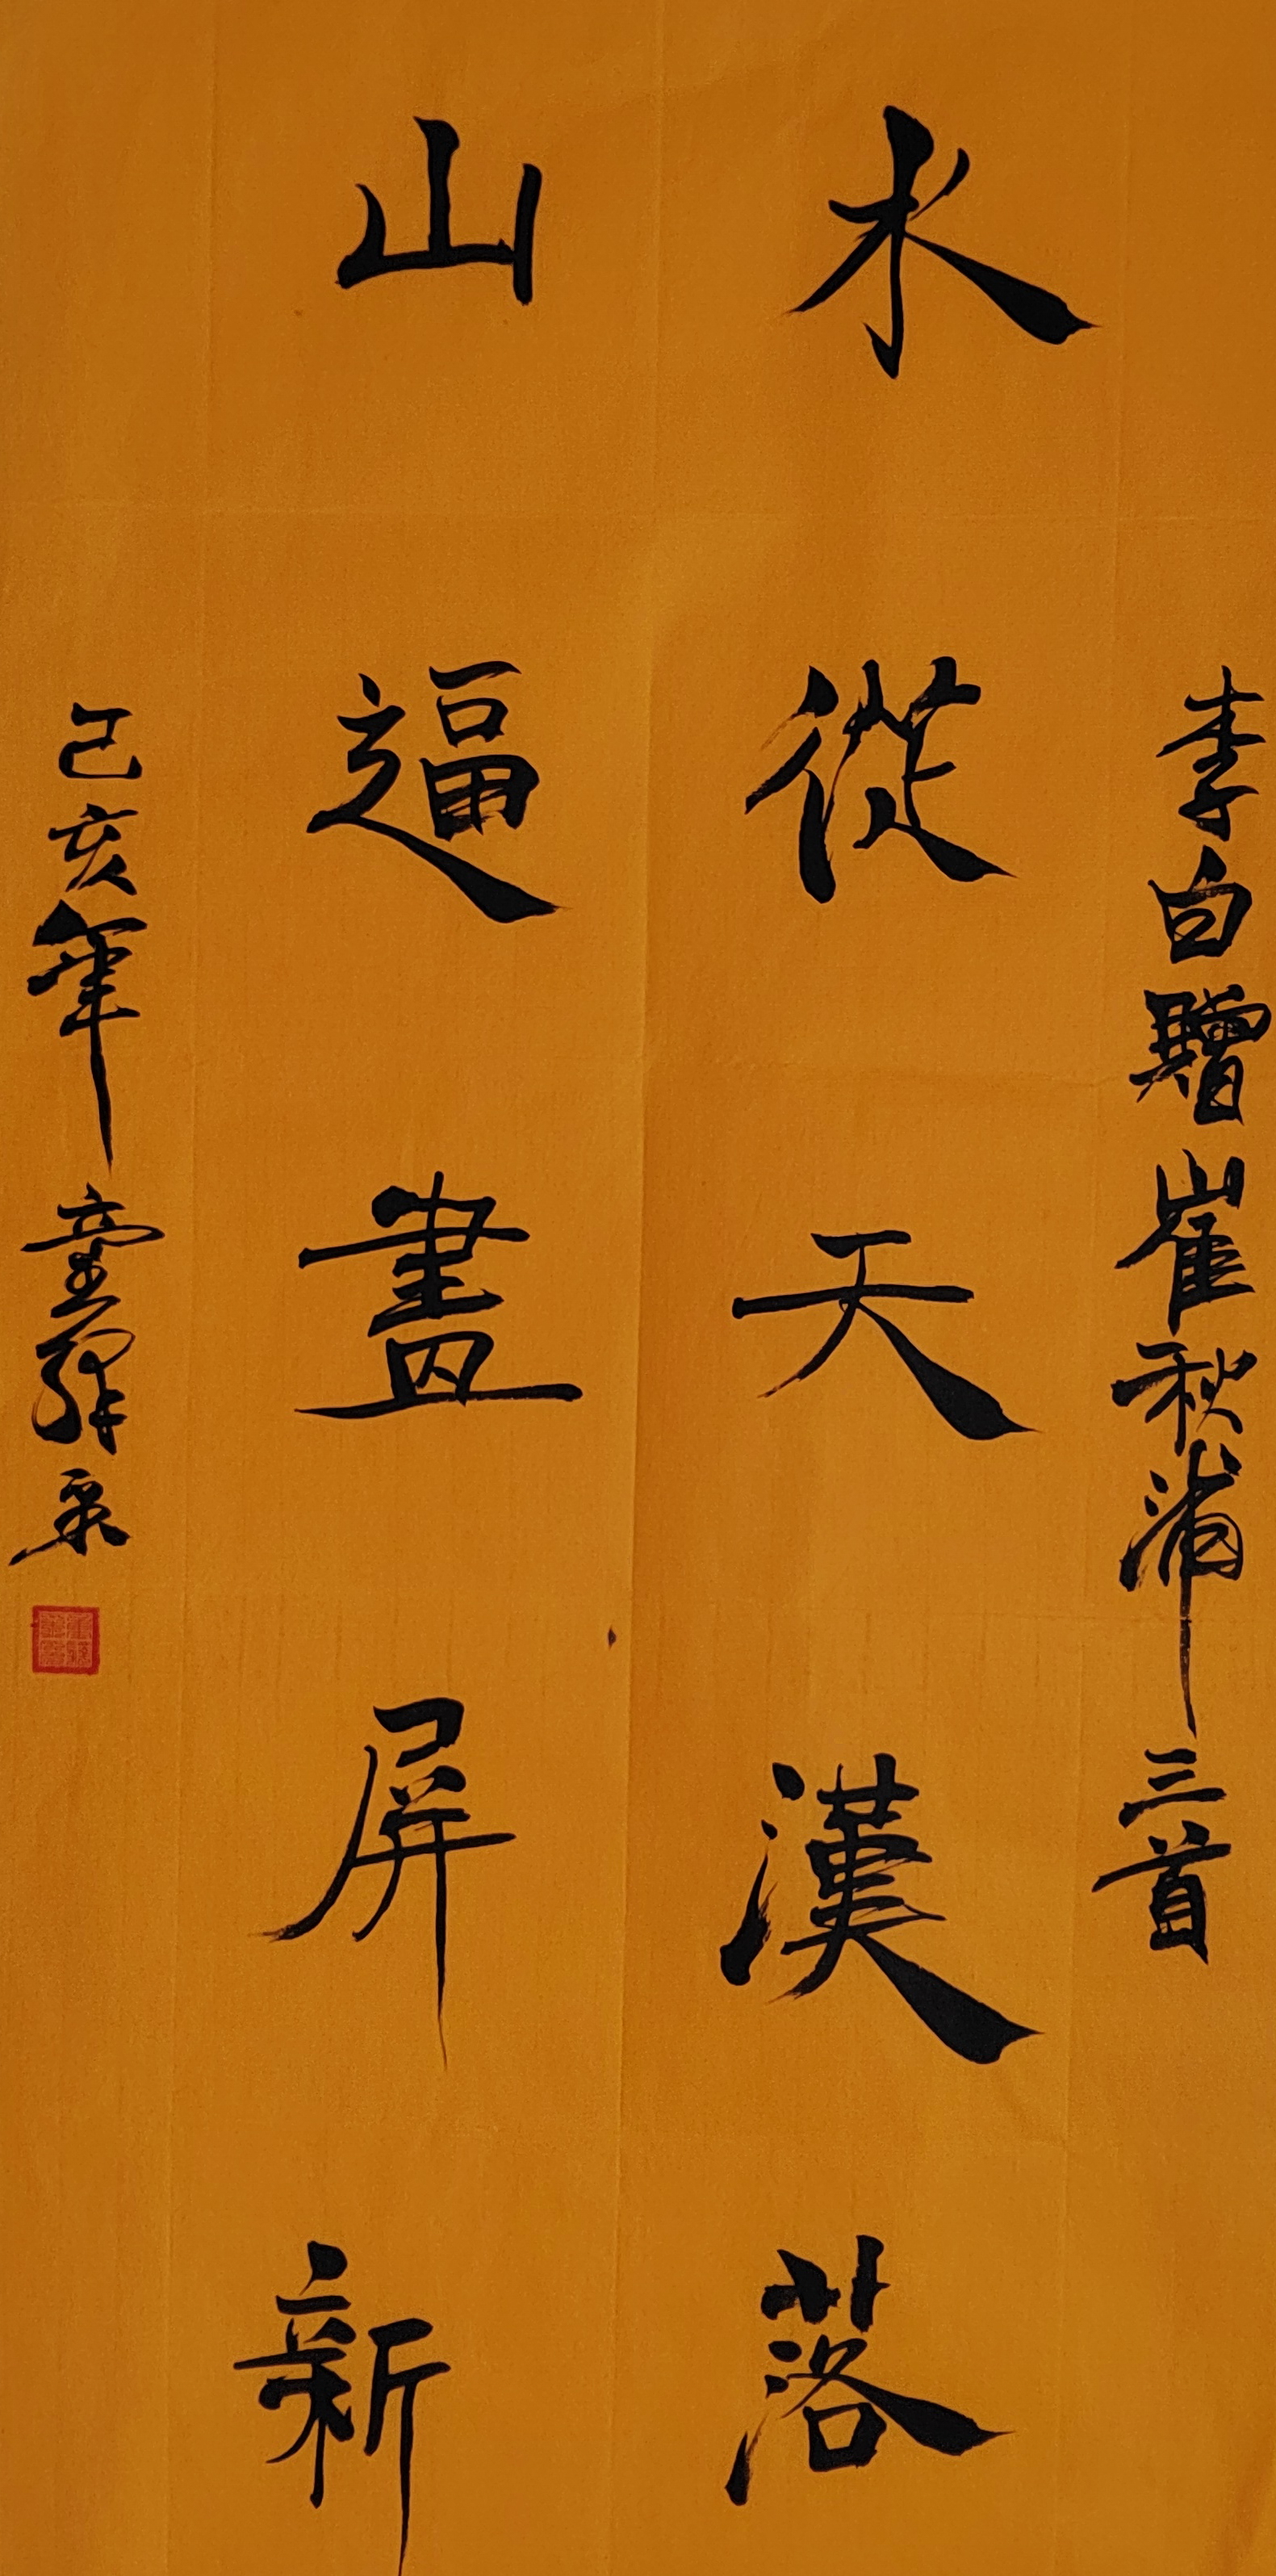 李白贈崔秋浦三首
水從天漢落
山逼畫屏新
己亥年童驛泉